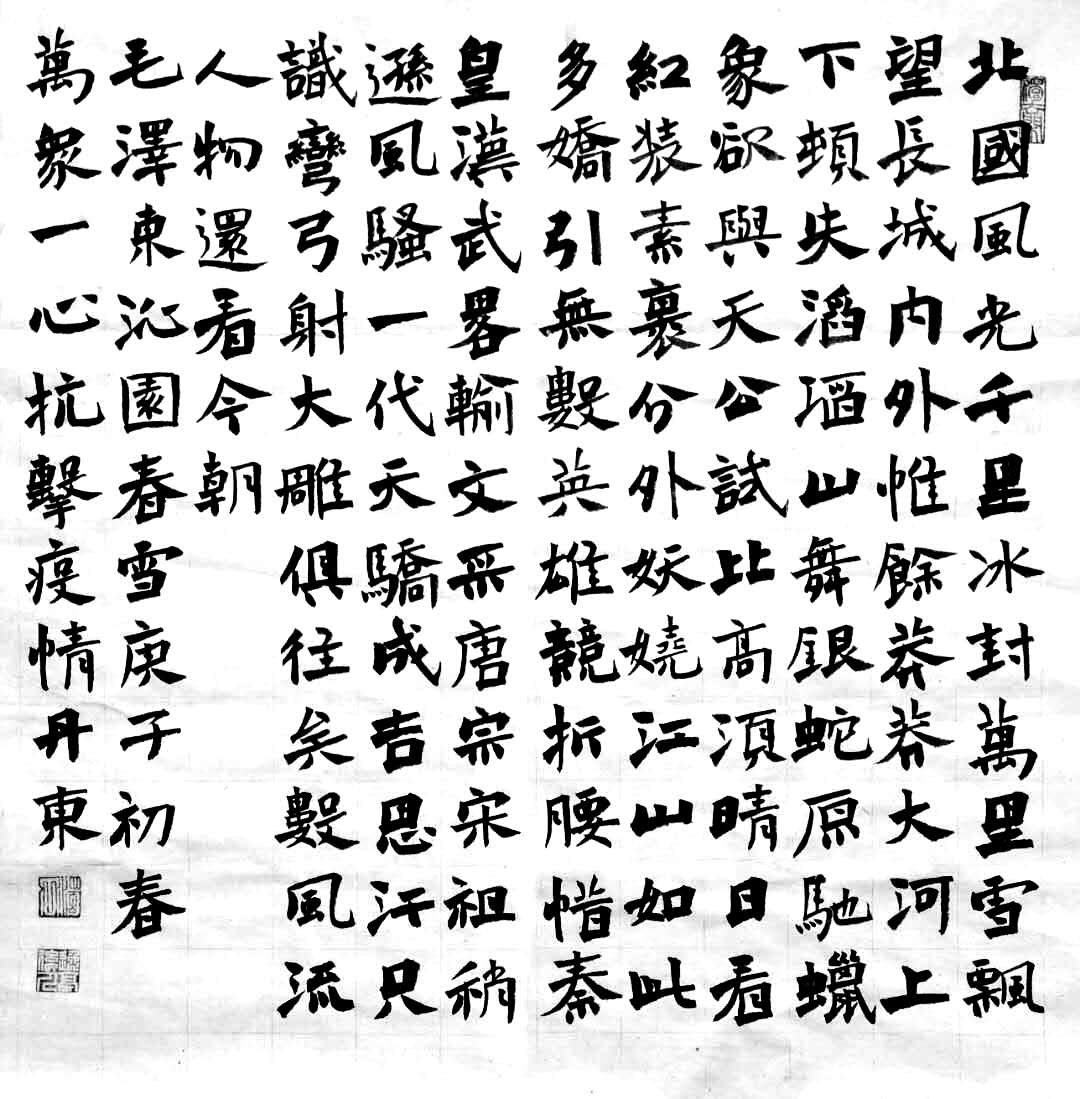 北國風光千里冰封萬里雪飄
望長城內外惟餘莽莽大河上
下頓失滔滔山舞銀蛇原馳蠟
象欲與天公試比高須晴日看
紅裝素裹分外妖嬈江山如此
多嬌引無數英雄競折腰惜秦
皇漢武畧輸文采唐宗宋祖稍
遜風騷一代天驕成吉思汗只
識彎弓射大雕俱往矣數風流
人物還看今朝
毛澤東沁園春雪庚子初春
萬眾一心抗擊疫情丹東